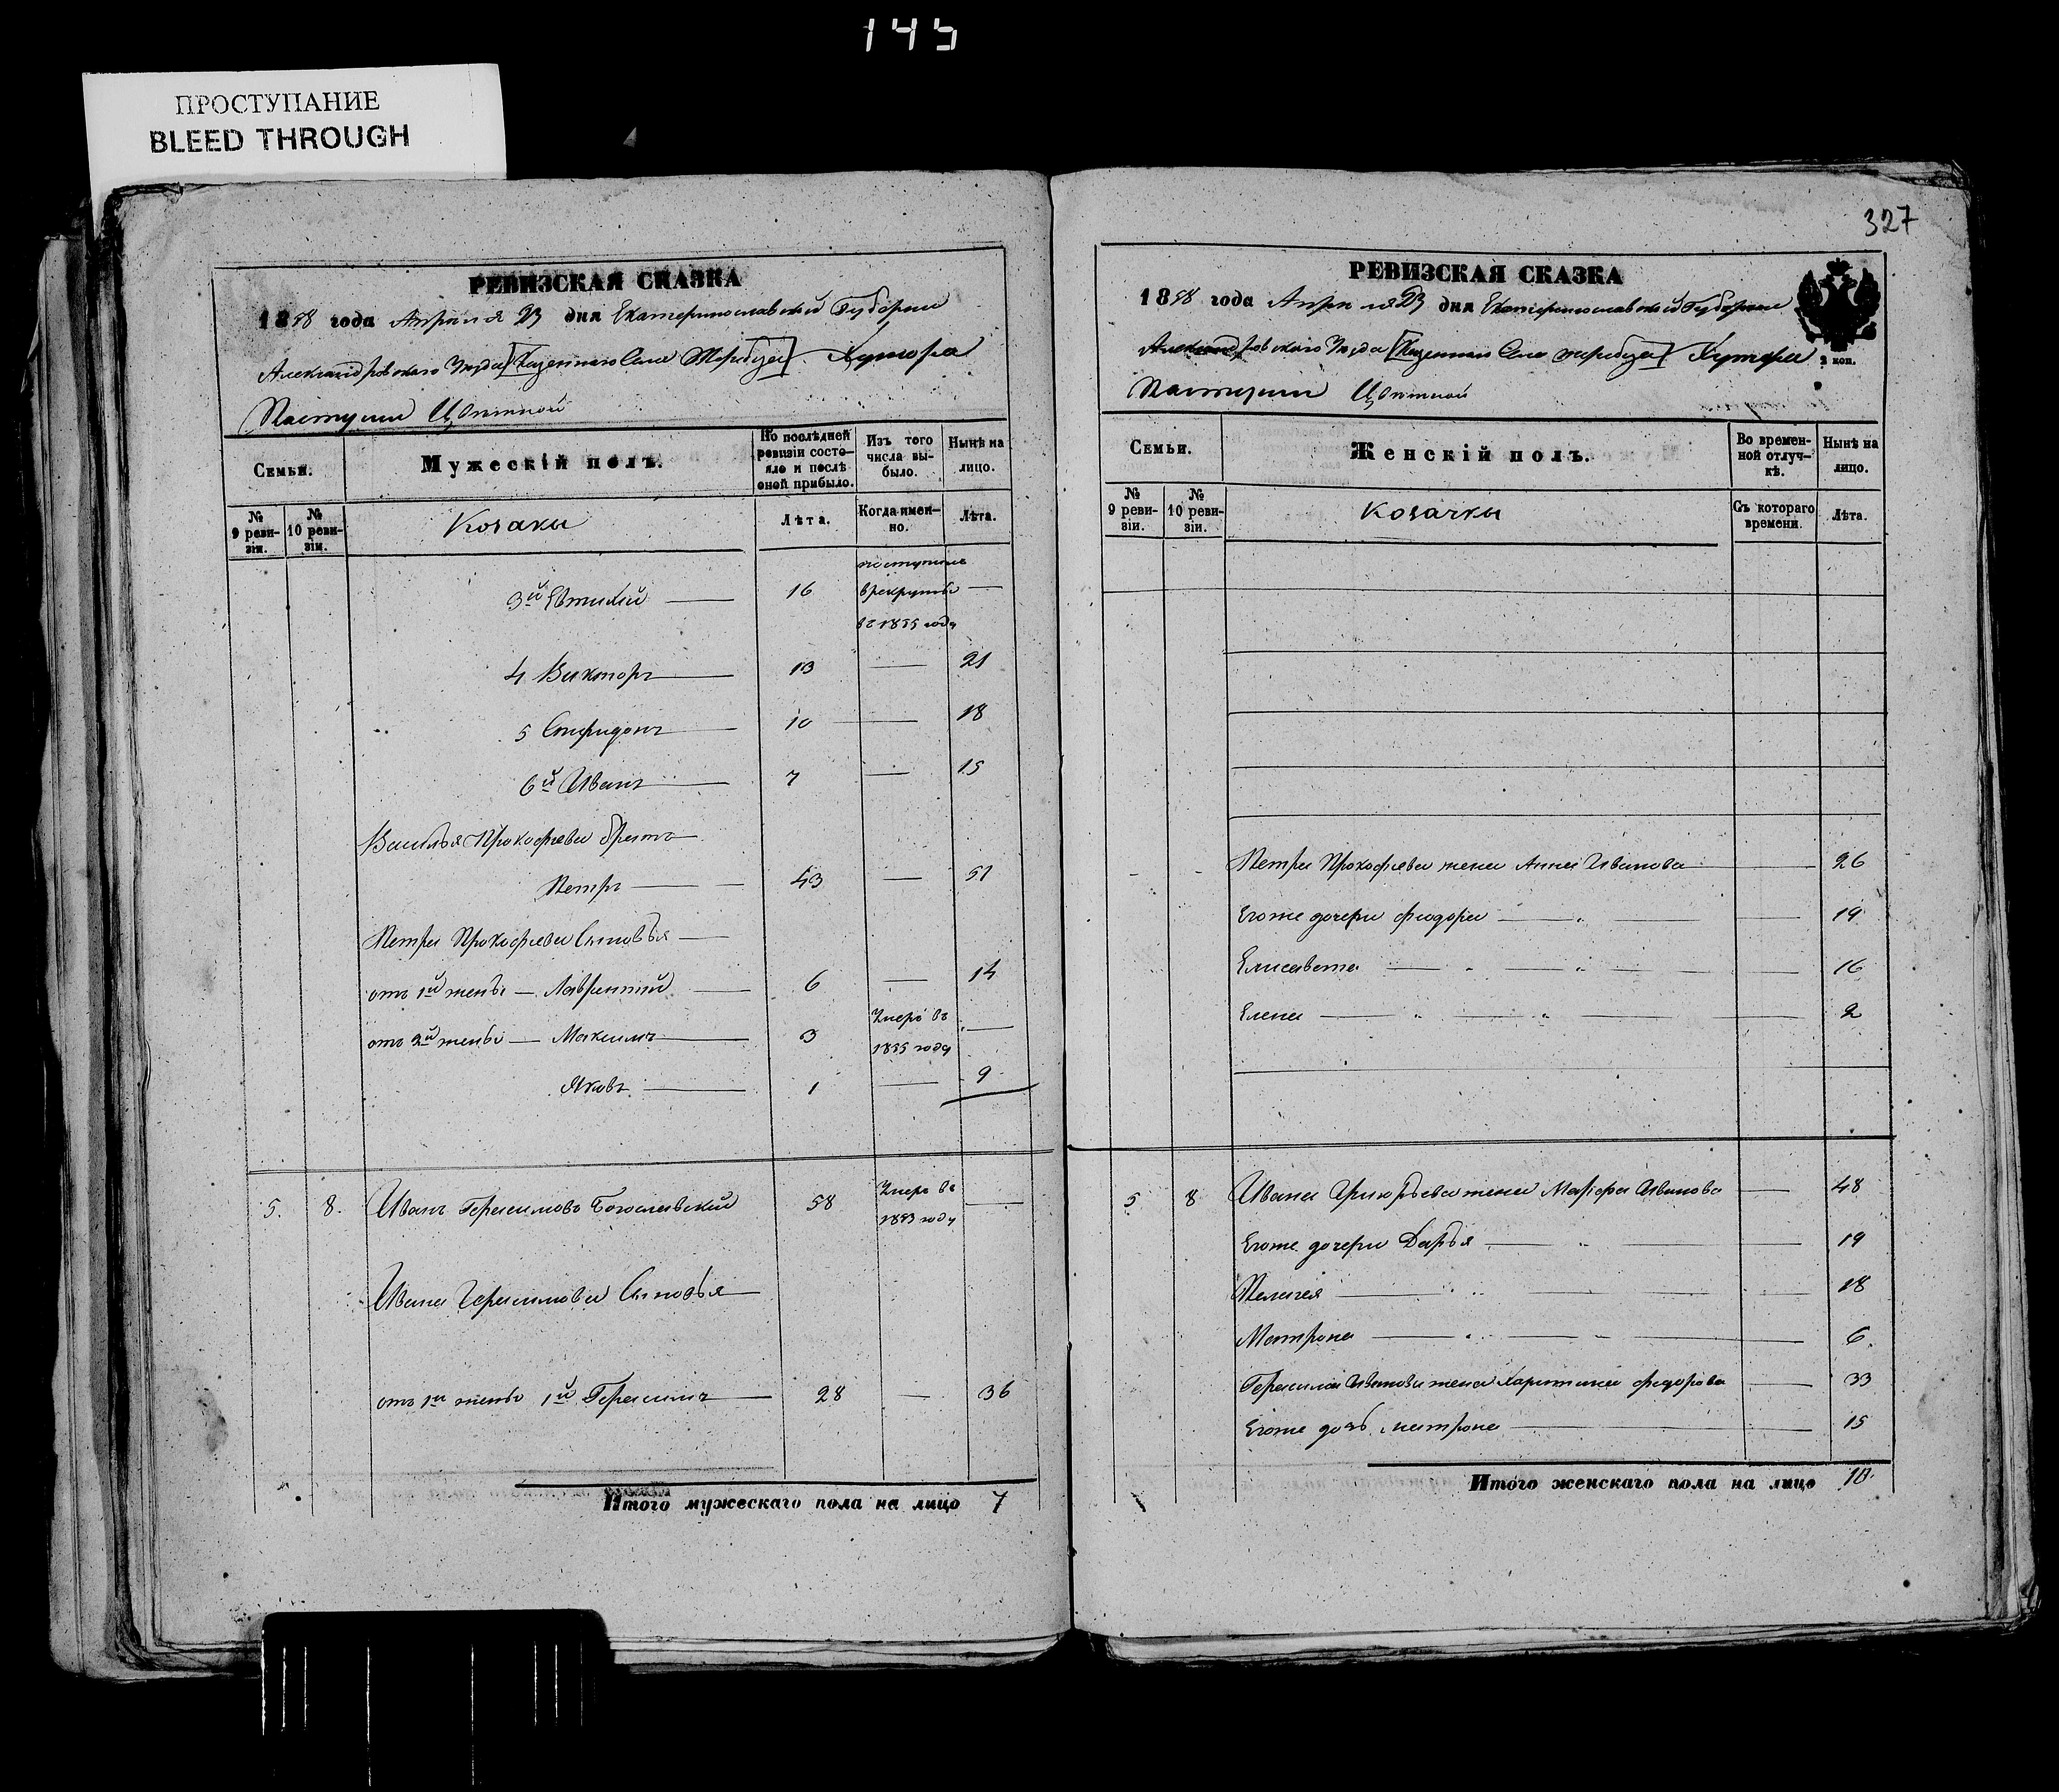 145
ПРОСТУПАНИЕ
BLEED THROUGH
РЕВИЗСКАЯ СКАЗКА
1858 года Апреля 23 дня Екатеринославской Губернии
Александровскаго Уезда [Казеннаго Села Жеребца] Хутора
Цветной
Семьи.
Мужескій полъ.
По послѣдней ревизіи состояло и послѣ оной прибыло.
Изъ того числа выбыло.
Нынѣ на лицо.
№ 9 ревизіи.
№ 10 ревизіи.
Козаки
Лѣта.
Когда именно.
Лѣта.
3й Евтихій 16 поступилъ в рекруты въ 1855 году
4 Викторъ 13 21
5 Спиридонъ 10 18
6й Иванъ 7 15
Василья Прокофьева братъ
Петръ 43 51
Петра Прокофьева Сыновья
отъ 1й жены Лаврентій 6 14
отъ 2й жены Максимъ 3 Умеръ въ 1855 году
Яковъ 1 9
5. 8. Иванъ Герасимовъ Богославскій 58 Умеръ въ 1853 году
Ивана Герасимова Сыновья
отъ 1й жены 1й Герасимъ 28 36
Итого мужескаго пола на лицо 7
327
РЕВИЗСКАЯ СКАЗКА
1858 года Апреля 23 дня Екатеринославской Губернии
Александровскаго Уезда [Казеннаго Села Жеребца] Хутора
2 коп.
Цветной
Семьи.
Женскій полъ.
Во временной отлучкѣ.
Нынѣ на лицо.
№ 9 ревизіи.
№ 10 ревизіи.
Козачки
Съ котораго времени.
Лѣта.
Петра Прокофьева жена Анна Иванова 26
Егоже дочери Федора 19
Елисавета 16
Елена 2
5 8 Ивана жена Марфа Иванова 48
Егоже дочери Дарья 19
Пелагея 18
Матрона 6
Герасима Иванова жена Харитина Федорова 33
Егоже дочь Матрона 15
Итого женскаго пола на лицо 10